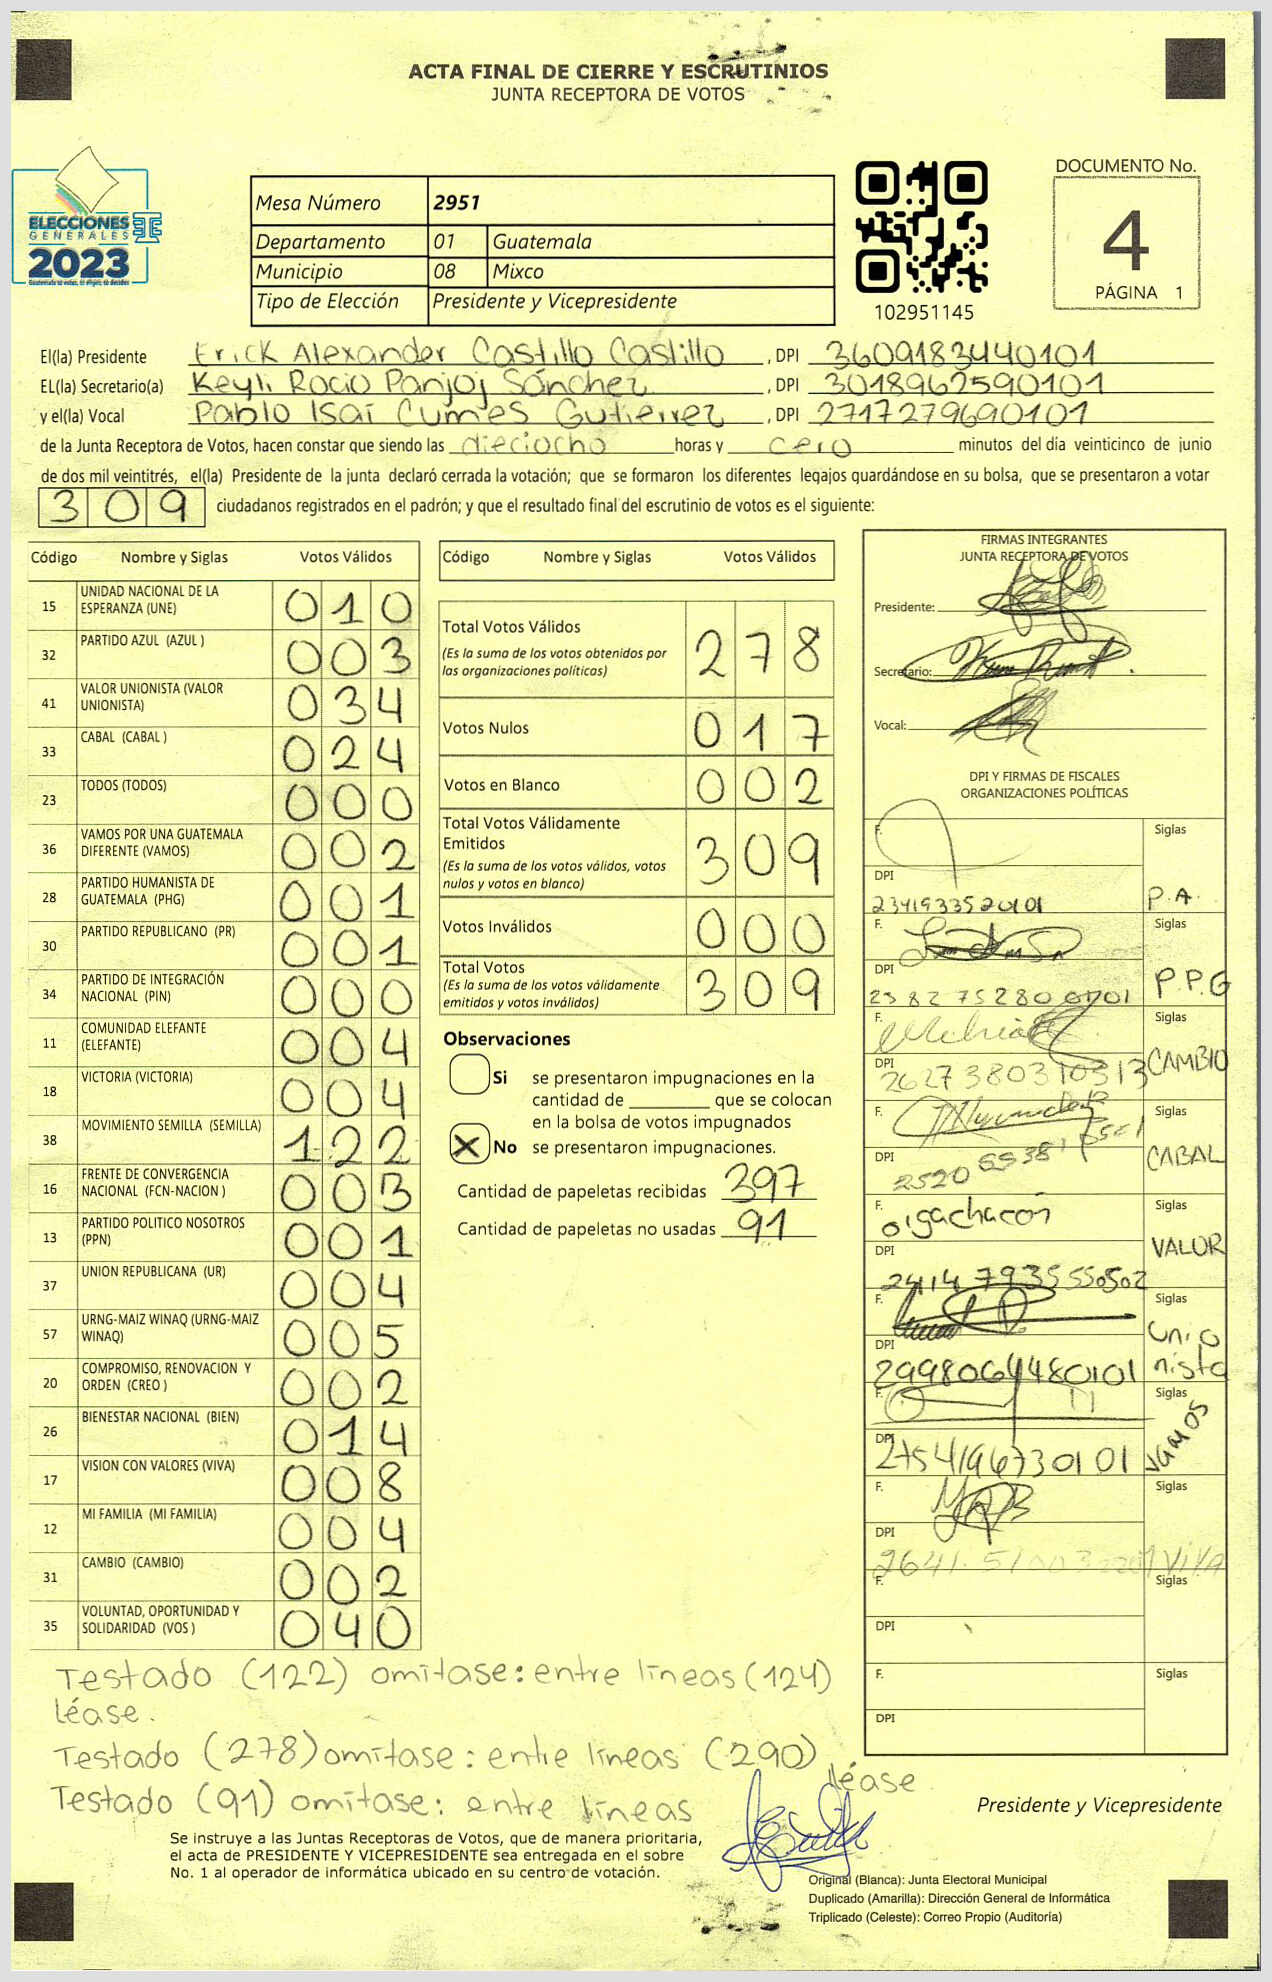 ACTA FINAL DE CIERRE Y ESCRUTINIOS
JUNTA RECEPTORA DE VOTOS
ELECCIONES
GENERALES
2023
Mesa Número 2951
Departamento 01 Guatemala
Municipio 08 Mixco
Tipo de Elección Presidente y Vicepresidente
102951145
DOCUMENTO No.
4
PÁGINA 1
El(la) Presidente Erick Alexander Castillo Castillo, DPI 3609183440101
EL(la) Secretario(a) Keyli Rocio Panjoj Sánchez, DPI 3018962590101
y el(la) Vocal Pablo Isaí Cumes Gutierrez, DPI 2717279690101
de la Junta Receptora de Votos, hacen constar que siendo las dieciocho horas y cero minutos del día veinticinco de junio
de dos mil veintitrés, el(la) Presidente de la junta declaró cerrada la votación; que se formaron los diferentes legajos guardándose en su bolsa, que se presentaron a votar
309 ciudadanos registrados en el padrón; y que el resultado final del escrutinio de votos es el siguiente:
Código Nombre y Siglas Votos Válidos
15 UNIDAD NACIONAL DE LA ESPERANZA (UNE) 010
32 PARTIDO AZUL (AZUL ) 003
41 VALOR UNIONISTA (VALOR UNIONISTA) 034
33 CABAL (CABAL ) 024
23 TODOS (TODOS) 000
36 VAMOS POR UNA GUATEMALA DIFERENTE (VAMOS) 002
28 PARTIDO HUMANISTA DE GUATEMALA (PHG) 001
30 PARTIDO REPUBLICANO (PR) 001
34 PARTIDO DE INTEGRACIÓN NACIONAL (PIN) 000
11 COMUNIDAD ELEFANTE (ELEFANTE) 004
18 VICTORIA (VICTORIA) 004
38 MOVIMIENTO SEMILLA (SEMILLA) 122
16 FRENTE DE CONVERGENCIA NACIONAL (FCN-NACION ) 003
13 PARTIDO POLITICO NOSOTROS (PPN) 001
37 UNION REPUBLICANA (UR) 004
57 URNG-MAIZ WINAQ (URNG-MAIZ WINAQ) 005
20 COMPROMISO, RENOVACION Y ORDEN (CREO ) 002
26 BIENESTAR NACIONAL (BIEN) 014
17 VISION CON VALORES (VIVA) 008
12 MI FAMILIA (MI FAMILIA) 004
31 CAMBIO (CAMBIO) 002
35 VOLUNTAD, OPORTUNIDAD Y SOLIDARIDAD (VOS ) 040
Código Nombre y Siglas Votos Válidos
Total Votos Válidos 278
(Es la suma de los votos obtenidos por
las organizaciones políticas)
Votos Nulos 017
Votos en Blanco 002
Total Votos Válidamente
Emitidos 309
(Es la suma de los votos válidos, votos
nulos y votos en blanco)
Votos Inválidos 000
Total Votos 309
(Es la suma de los votos válidamente
emitidos y votos inválidos)
Observaciones
Si se presentaron impugnaciones en la
cantidad de ________ que se colocan
en la bolsa de votos impugnados
X No se presentaron impugnaciones.
Cantidad de papeletas recibidas 397
Cantidad de papeletas no usadas 91
FIRMAS INTEGRANTES
JUNTA RECEPTORA DE VOTOS
Presidente:
Secretario:
Vocal:
DPI Y FIRMAS DE FISCALES
ORGANIZACIONES POLÍTICAS
F. Siglas
DPI 2341933520101 P.A.
F. Siglas
DPI P.P.G
F. Siglas
DPI 2627380310313 CAMBIO
F. Siglas
DPI CABAL
F. olgachacón Siglas
DPI VALOR
F. Siglas
DPI 2998064480101 Unionista
F. Siglas
DPI 2754196730101 VAMOS
F. Siglas
DPI VIVA
F. Siglas
DPI
F. Siglas
DPI
Testado (122) omítase: entre líneas (124)
léase.
Testado (278) omítase: entre líneas (290) léase
Testado (91) omítase: entre líneas
Presidente y Vicepresidente
Se instruye a las Juntas Receptoras de Votos, que de manera prioritaria,
el acta de PRESIDENTE Y VICEPRESIDENTE sea entregada en el sobre
No. 1 al operador de informática ubicado en su centro de votación.
Original (Blanca): Junta Electoral Municipal
Duplicado (Amarilla): Dirección General de Informática
Triplicado (Celeste): Correo Propio (Auditoría)